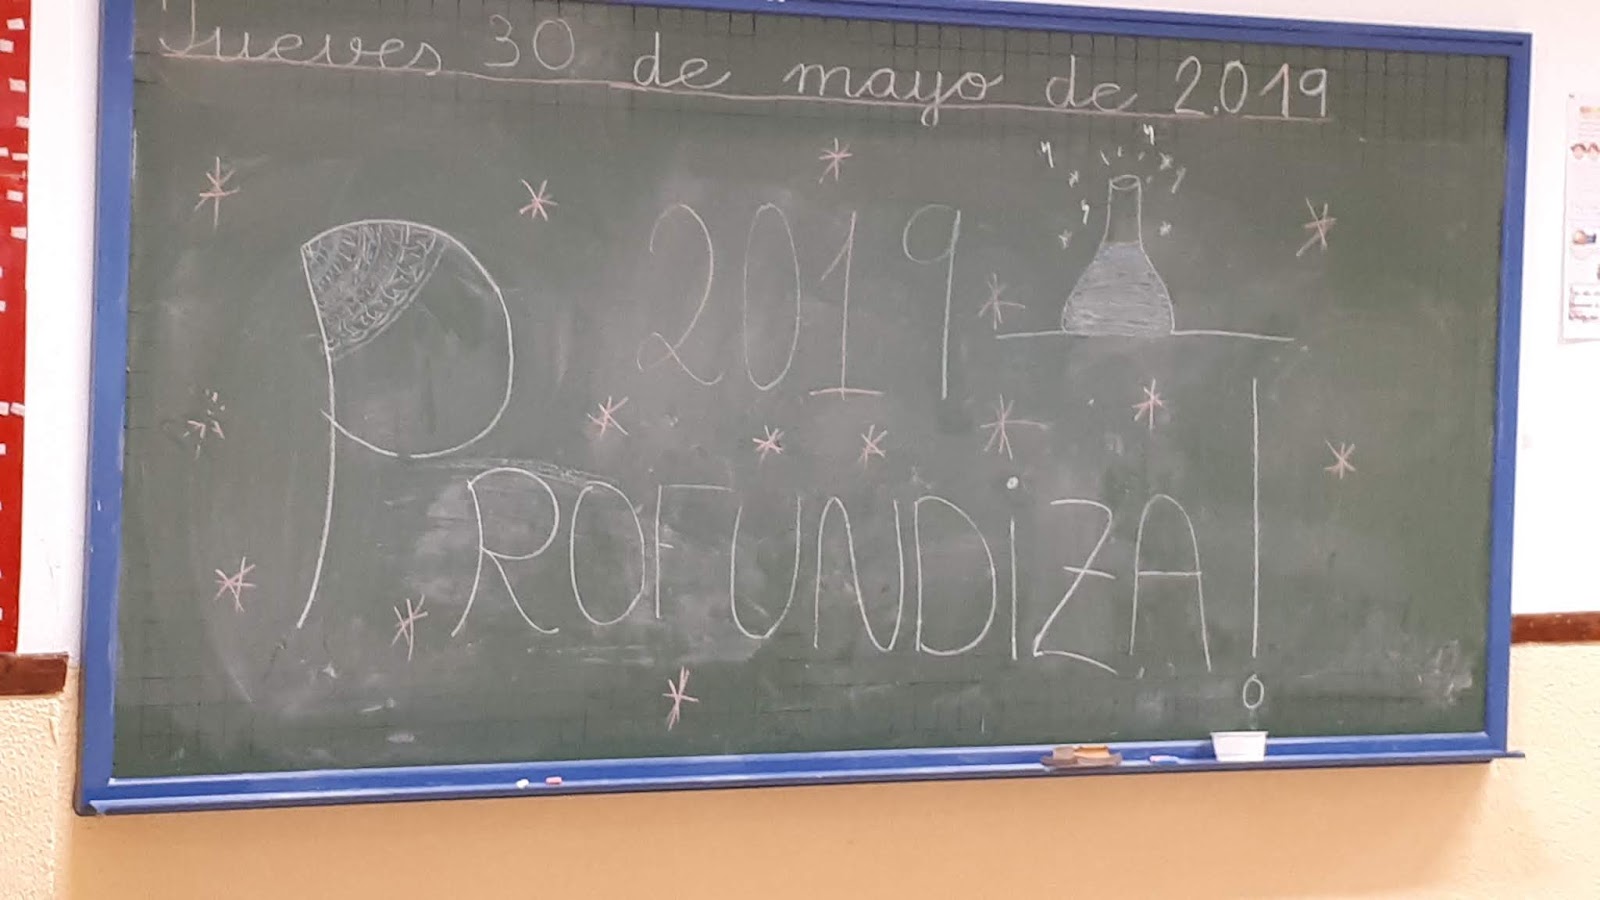 Jueves 30 de mayo de 2.019
2019
PROFUNDiZA!